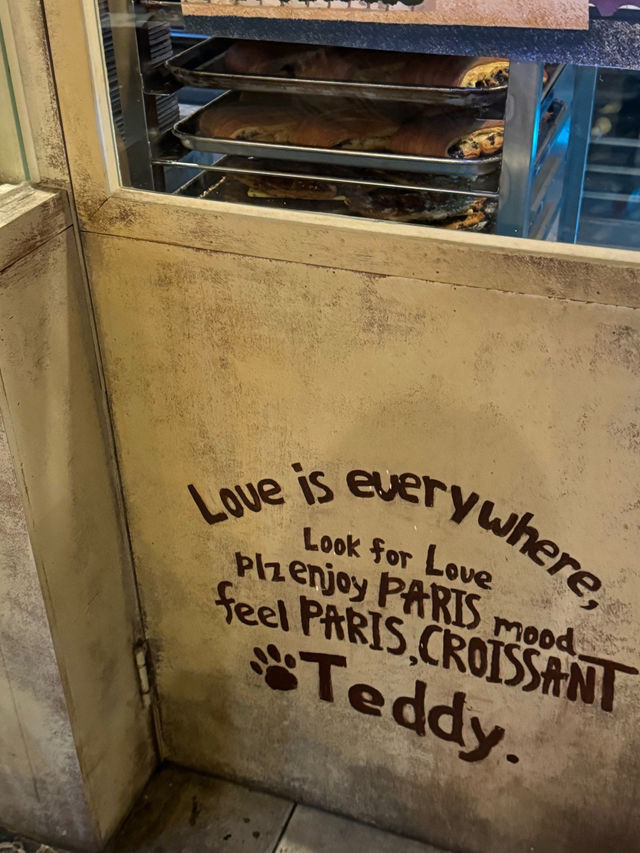 Love is everywhere,
Look for Love
Plz enjoy PARIS mood
feel PARIS, CROISSANT
Teddy.